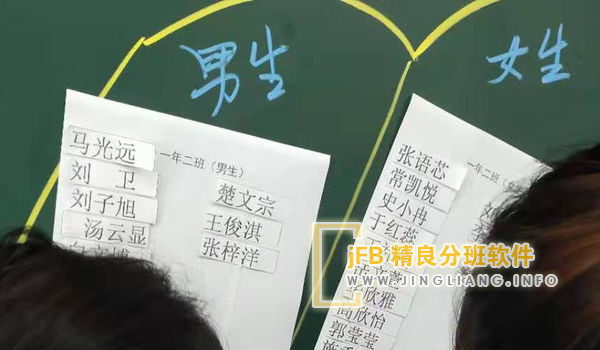 男生
女生
一年二班（男生）
马光远
刘 卫
刘子旭
汤云显
楚文宗
王俊淇
张梓洋
一年二班（
张语芯
常凯悦
史小冉
于红蕊
欣雅
高欣怡
郭莹莹
jFB 精良分班软件
WWW.JINGLIANG.INFO